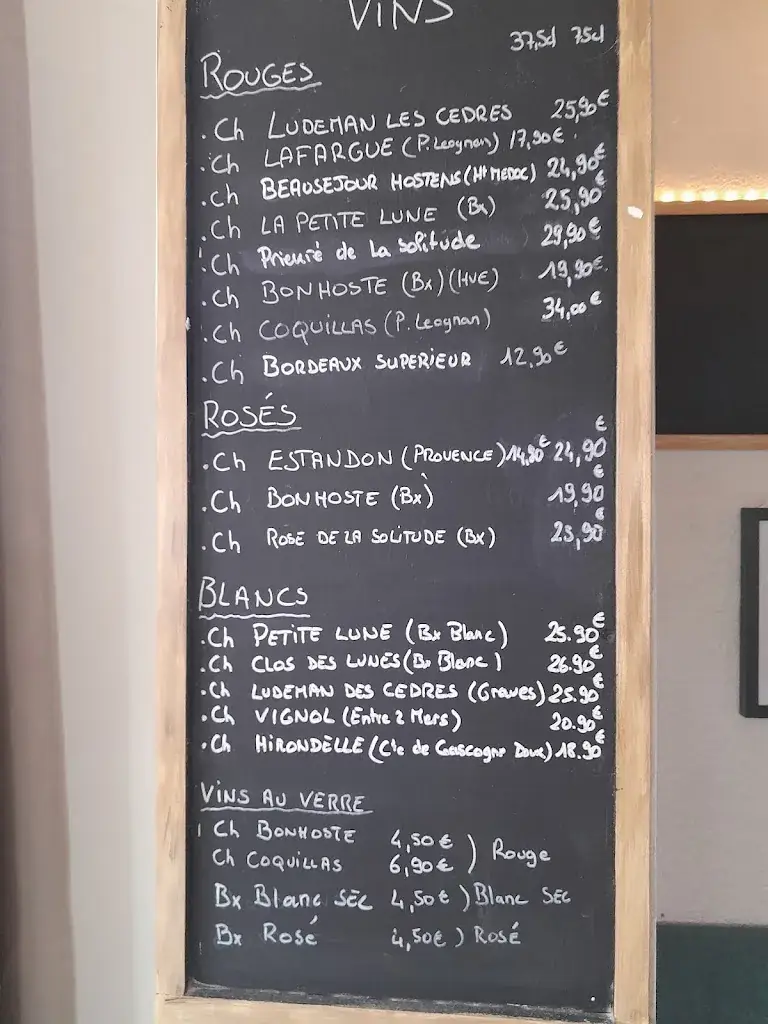 VINS
37,5cl 75cl
ROUGES
. Ch LUDEMAN LES CEDRES 25,90€
. Ch LAFARGUE (P. Leognan) 17,90€
. Ch BEAUSEJOUR HOSTENS (Ht MEDOC) 24,90€
. Ch LA PETITE LUNE (Bx) 25,90€
. Ch Prieuré de la Solitude 29,90€
. Ch BONHOSTE (Bx) (HVE) 19,90€
. Ch COQUILLAS (P. Leognan) 34,00€
. Ch BORDEAUX SUPERIEUR 12,90€
ROSÉS
. Ch ESTANDON (PROVENCE) 14,90€ 24,90€
. Ch BONHOSTE (Bx) 19,90€
. Ch ROSE DE LA SOLITUDE (Bx) 23,90€
BLANCS
. Ch PETITE LUNE (Bx Blanc) 25.90€
. Ch CLOS DES LUNES (Bx Blanc) 26.90€
. Ch LUDEMAN DES CEDRES (Graves) 25.90€
. Ch VIGNOL (Entre 2 Mers) 20.90€
. Ch HIRONDELLE (Cte de Gascogne Doux) 18.90€
VINS AU VERRE
Ch BONHOSTE 4,50€
Ch COQUILLAS 6,90€ ) Rouge
Bx Blanc SEC 4,50€ ) Blanc SEC
Bx Rosé 4,50€ ) ROSÉ